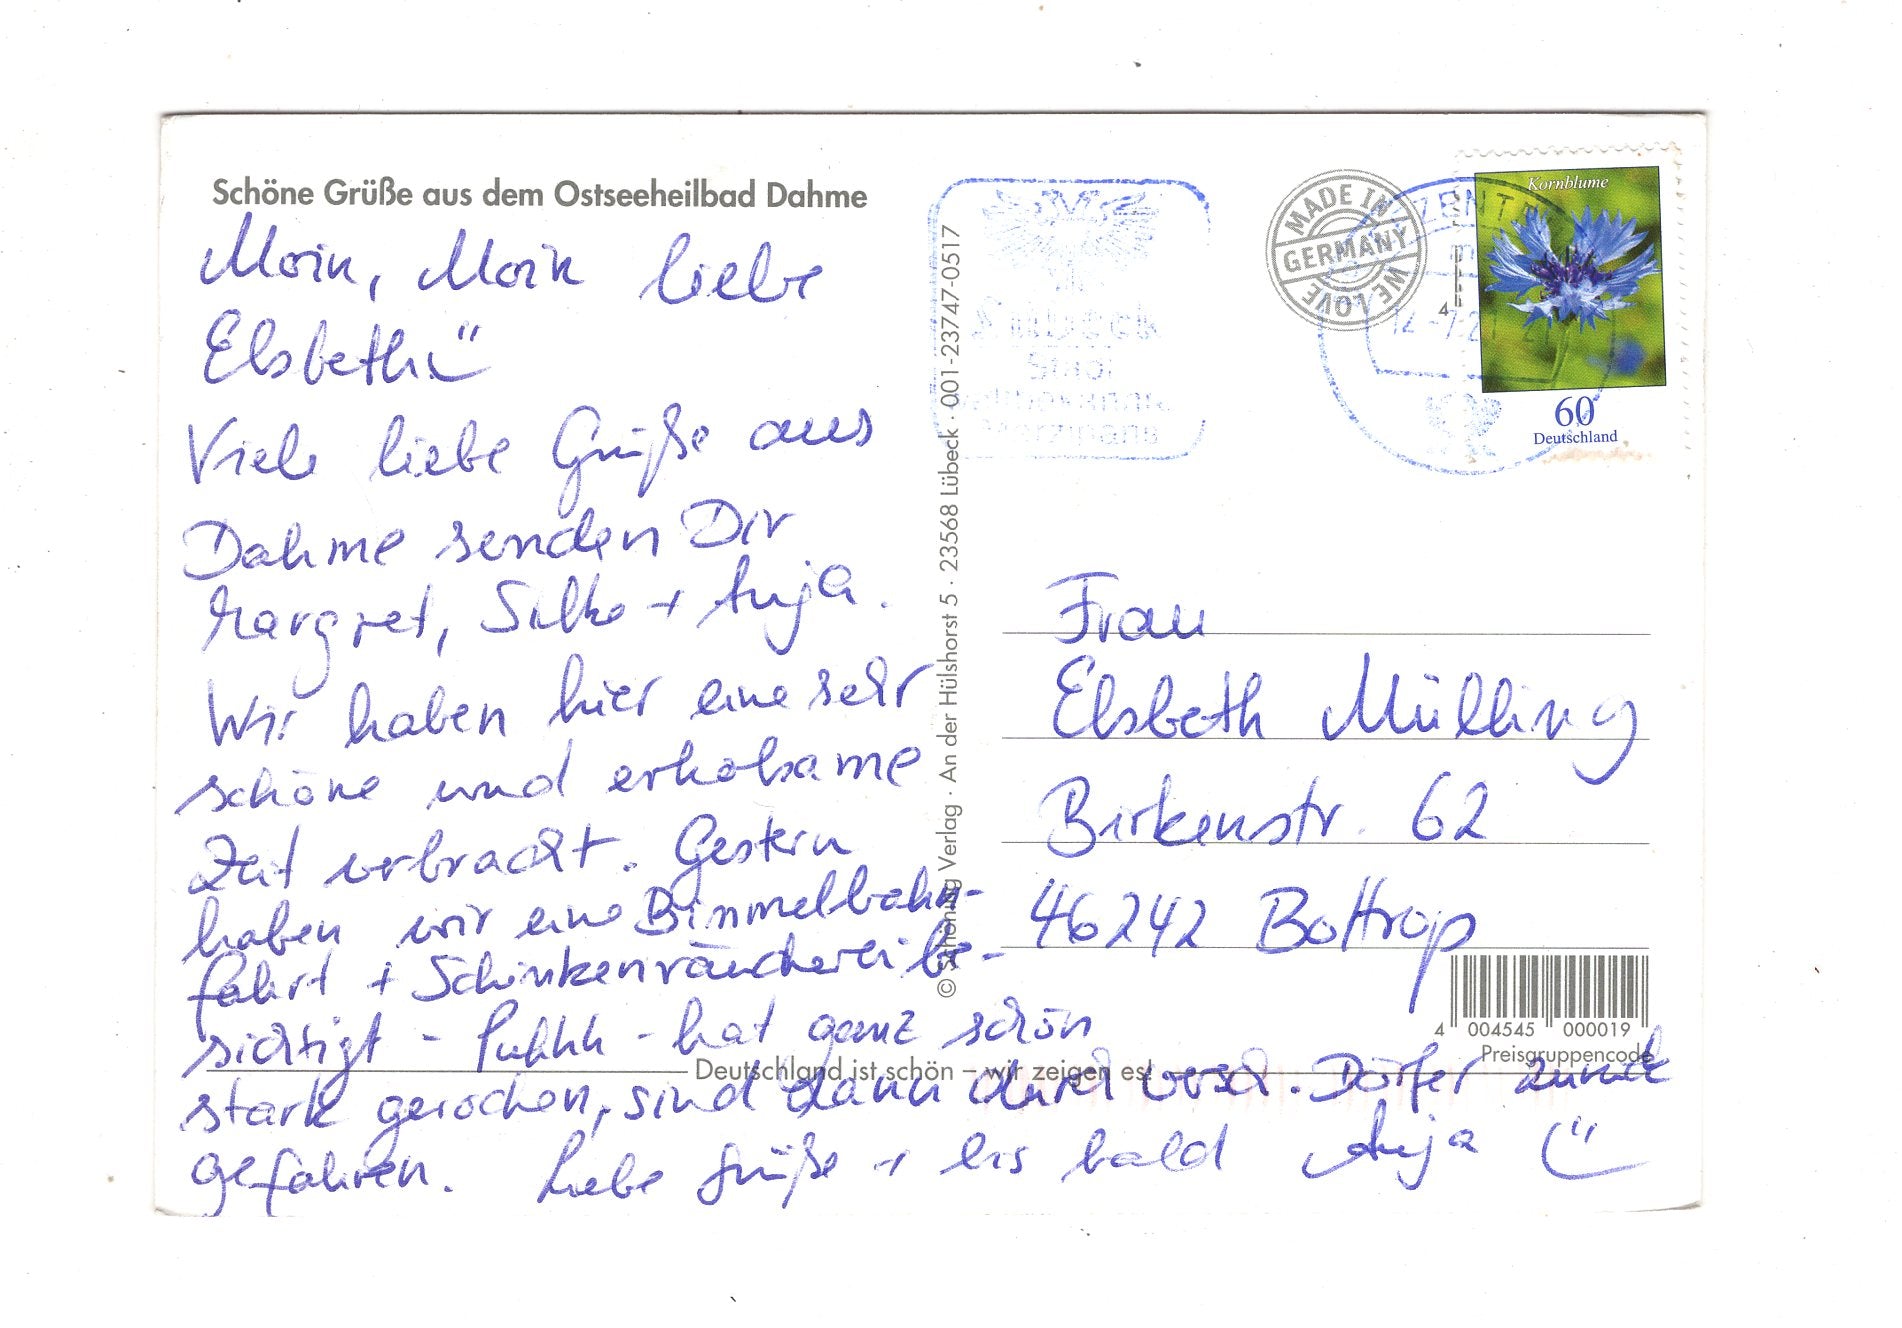 Schöne Grüße aus dem Ostseeheilbad Dahme
Moin, Moin liebe
Elsbeth
Viele liebe Grüße aus
Dahme senden Dir
Margret, Silke + Anja.
Wir haben hier eine sehr
schöne und erholsame
Zeit verbracht. Gestern
haben wir eine Bimmelbahn-
fahrt + Schinkenräucherei be-
sichtigt - Puhhh - hat ganz schön
stark gerochen, sind dann durch versch. Dörfer zurück
gefahren. Liebe Grüße + bis bald Anja
© Schöning Verlag · An der Hülshorst 5 · 23568 Lübeck · 001-23747-0517
Deutschland ist schön – wir zeigen es!
MADE IN
GERMANY
WE LOVE
Lübeck
Stadt
ZENT
Kornblume
60
Deutschland
Frau
Elsbeth Mülling
Birkenstr. 62
46242 Bottrop
4 004545 000019
Preisgruppencode